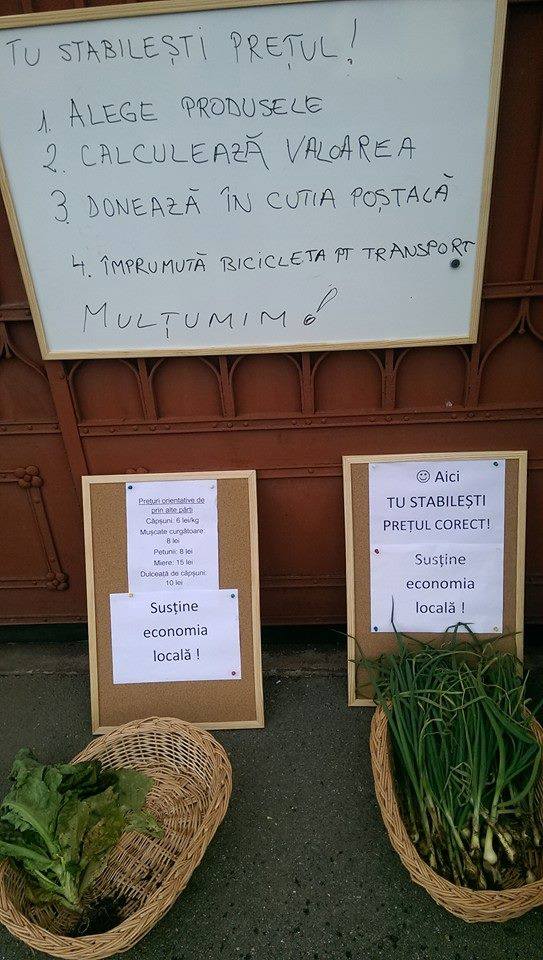 TU STABILEȘTI PREȚUL!
1. ALEGE PRODUSELE
2. CALCULEAZĂ VALOAREA
3. DONEAZĂ ÎN CUTIA POȘTALĂ
4. ÎMPRUMUTĂ BICICLETA PT TRANSPORT
MULȚUMIM!
Prețuri orientative de
prin alte părți
Căpșuni: 6 lei/kg
Mușcate curgătoare:
8 lei
Petunii: 8 lei
Miere: 15 lei
Dulceață de căpșuni:
10 lei
Susține
economia
locală !
☺ Aici
TU STABILEȘTI
PREȚUL CORECT!
Susține
economia
locală !